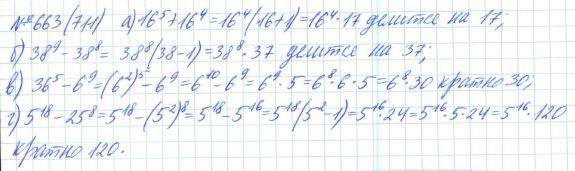 № 663 (741) а) 16⁵+16⁴=16⁴(16+1)=16⁴·17 делится на 17;
б) 38⁹-38⁸=38⁸(38-1)=38⁸·37 делится на 37;
в) 36⁵-6⁹=(6²)⁵-6⁹=6¹⁰-6⁹=6⁹·5=6⁸·6·5=6⁸·30 кратно 30;
г) 5¹⁸-25⁸=5¹⁸-(5²)⁸=5¹⁸-5¹⁶=5¹⁸(5²-1)=5¹⁶·24=5¹⁶·5·24=5¹⁶·120
кратно 120.